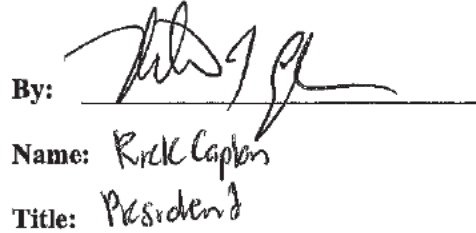 By:
Name: Rick Caplan
Title: President